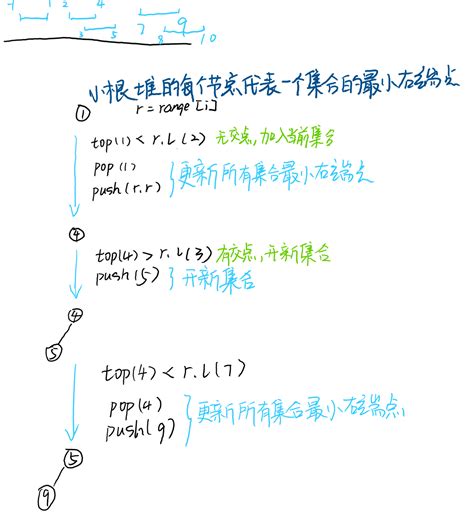 -1 1 2 4 7 9
3 5 8 10
小根堆的每个节点代表一个集合的最小右端点
① r = range[i]
top(1) < r.l(2) 无交点,加入当前集合
pop(1)
push(r.r) } 更新所有集合最小右端点
④
top(4) > r.l(3) 有交点,开新集合
push(5) } 开新集合
④
⑤
top(4) < r.l(7)
pop(4)
push(9) } 更新所有集合最小右端点
⑤
⑨